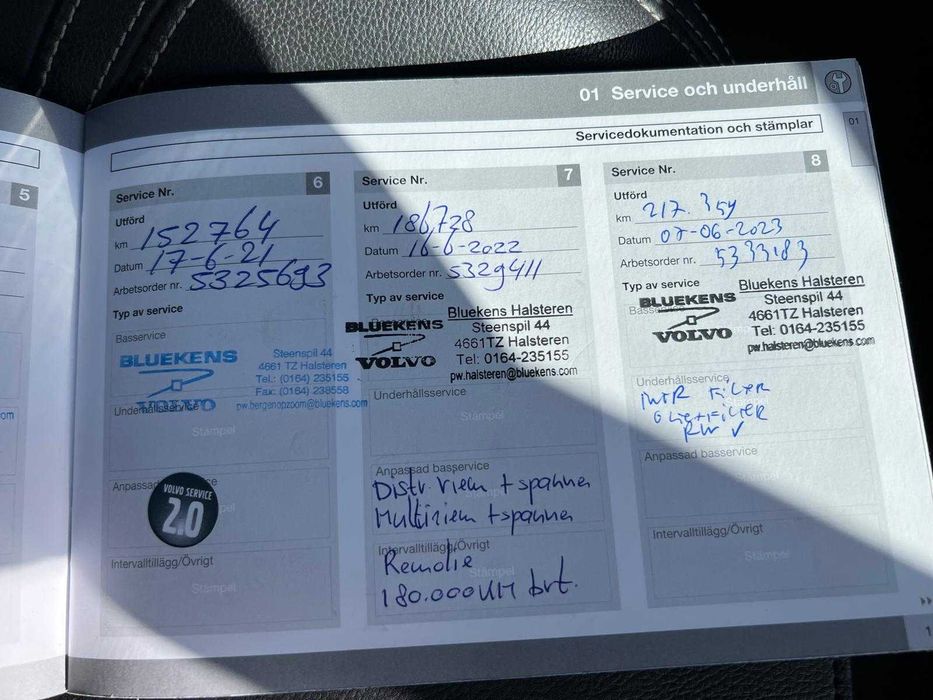 01 Service och underhåll
01
Servicedokumentation och stämplar
5
Service Nr. 6
Utförd
km 152764
Datum 17-6-21
Arbetsorder nr. 5325693
Typ av service
Basservice
BLUEKENS
VOLVO
Steenspil 44
4661 TZ Halsteren
Tel.: (0164) 235155
Fax: (0164) 238558
pw.bergenopzoom@bluekens.com
Underhållsservice
Stämpel
Anpassad
VOLVO SERVICE
2.0
Intervalltillägg/Övrigt
Stämpel
Service Nr. 7
Utförd
km 186,738
Datum 16-6-2022
Arbetsorder nr. 5329411
Typ av service
Basservice
BLUEKENS
VOLVO
Bluekens Halsteren
Steenspil 44
4661TZ Halsteren
Tel: 0164-235155
pw.halsteren@bluekens.com
Underhållsservice
Stämpel
Anpassad basservice
Distr. riem + spanner
Multiriem + spanner
Intervalltillägg/Övrigt
Stämpel
Remolie
180.000KM brt.
Service Nr. 8
Utförd
km 217.354
Datum 07-06-2023
Arbetsorder nr. 5333183
Typ av service
BLUEKENS
VOLVO
Bluekens Halsteren
Steenspil 44
4661TZ Halsteren
Tel: 0164-235155
pw.halsteren@bluekens.com
Underhållsservice
INTR FILTER
OLIE+FILTER
RW ✓
Anpassad basservice
Stämpel
Intervalltillägg/Övrigt
Stämpel
com